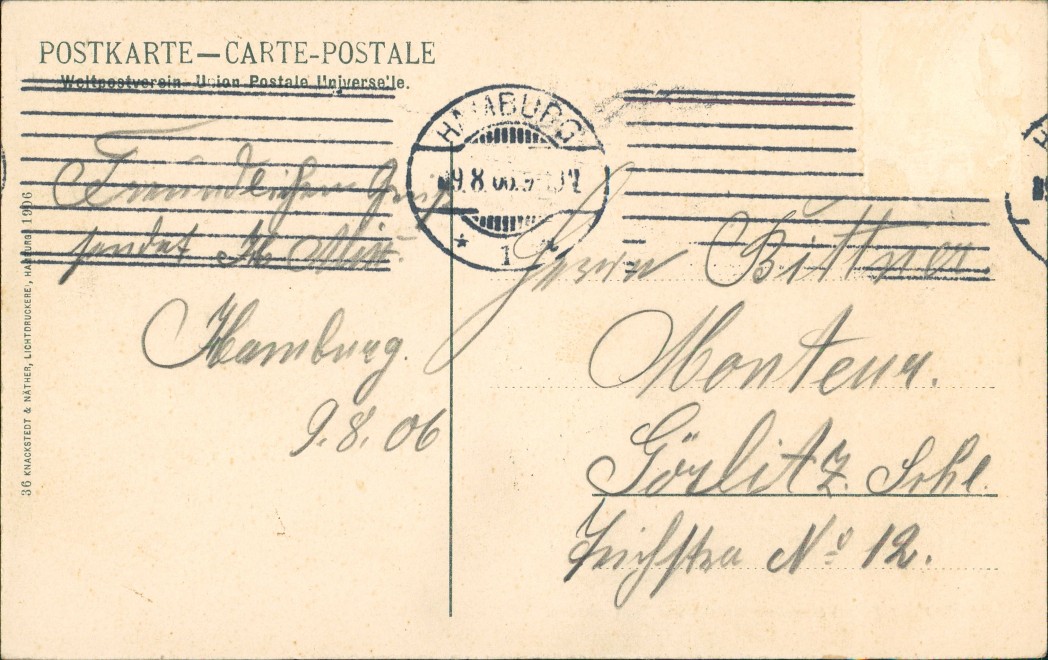 POSTKARTE — CARTE-POSTALE
Weltpostverein – Union Postale Universelle.
HAMBURG
9.8.06.
1
Freundlichen Gruß
sendet
Hamburg.
9.8.06
Herrn Büttner.
Monteur.
Görlitz. Schl.
No 12.
36 KNACKSTEDT & NÄTHER, LICHTDRUCKEREI, HAMBURG 1906